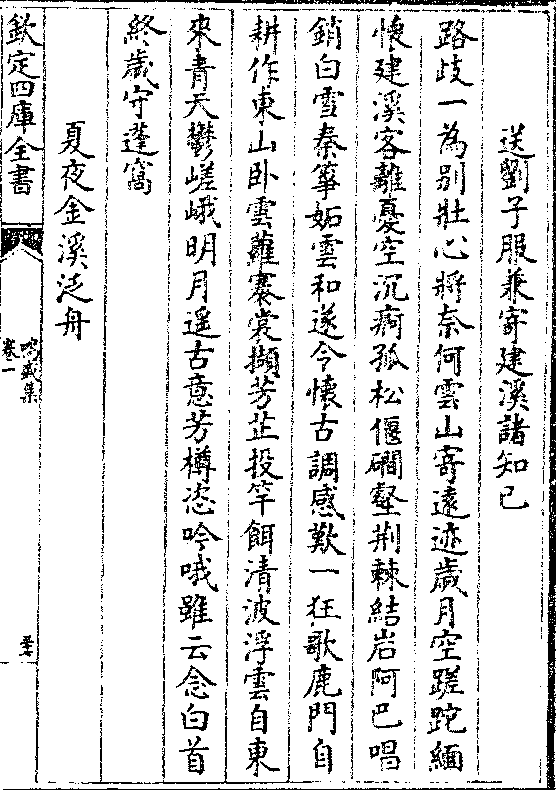 送劉子服兼寄建溪諸知已
路歧一為别壯心將奈何雲山寄遠迹歲月空蹉跎緬
懷建溪客離憂空沉痾孤松偃磵壑荆棘結岩阿巴唱
銷白雪秦箏妬雲和遂令懷古調感歎一狂歌鹿門自
耕作東山卧雲蘿褰裳擷芳芷投竿餌清波浮雲自東
來青天鬱嵯峨明月遥古意芳樽恣吟哦雖云念白首
終歲守蓬窩
夏夜金溪泛舟
欽定四庫全書
鳴盛集
卷一